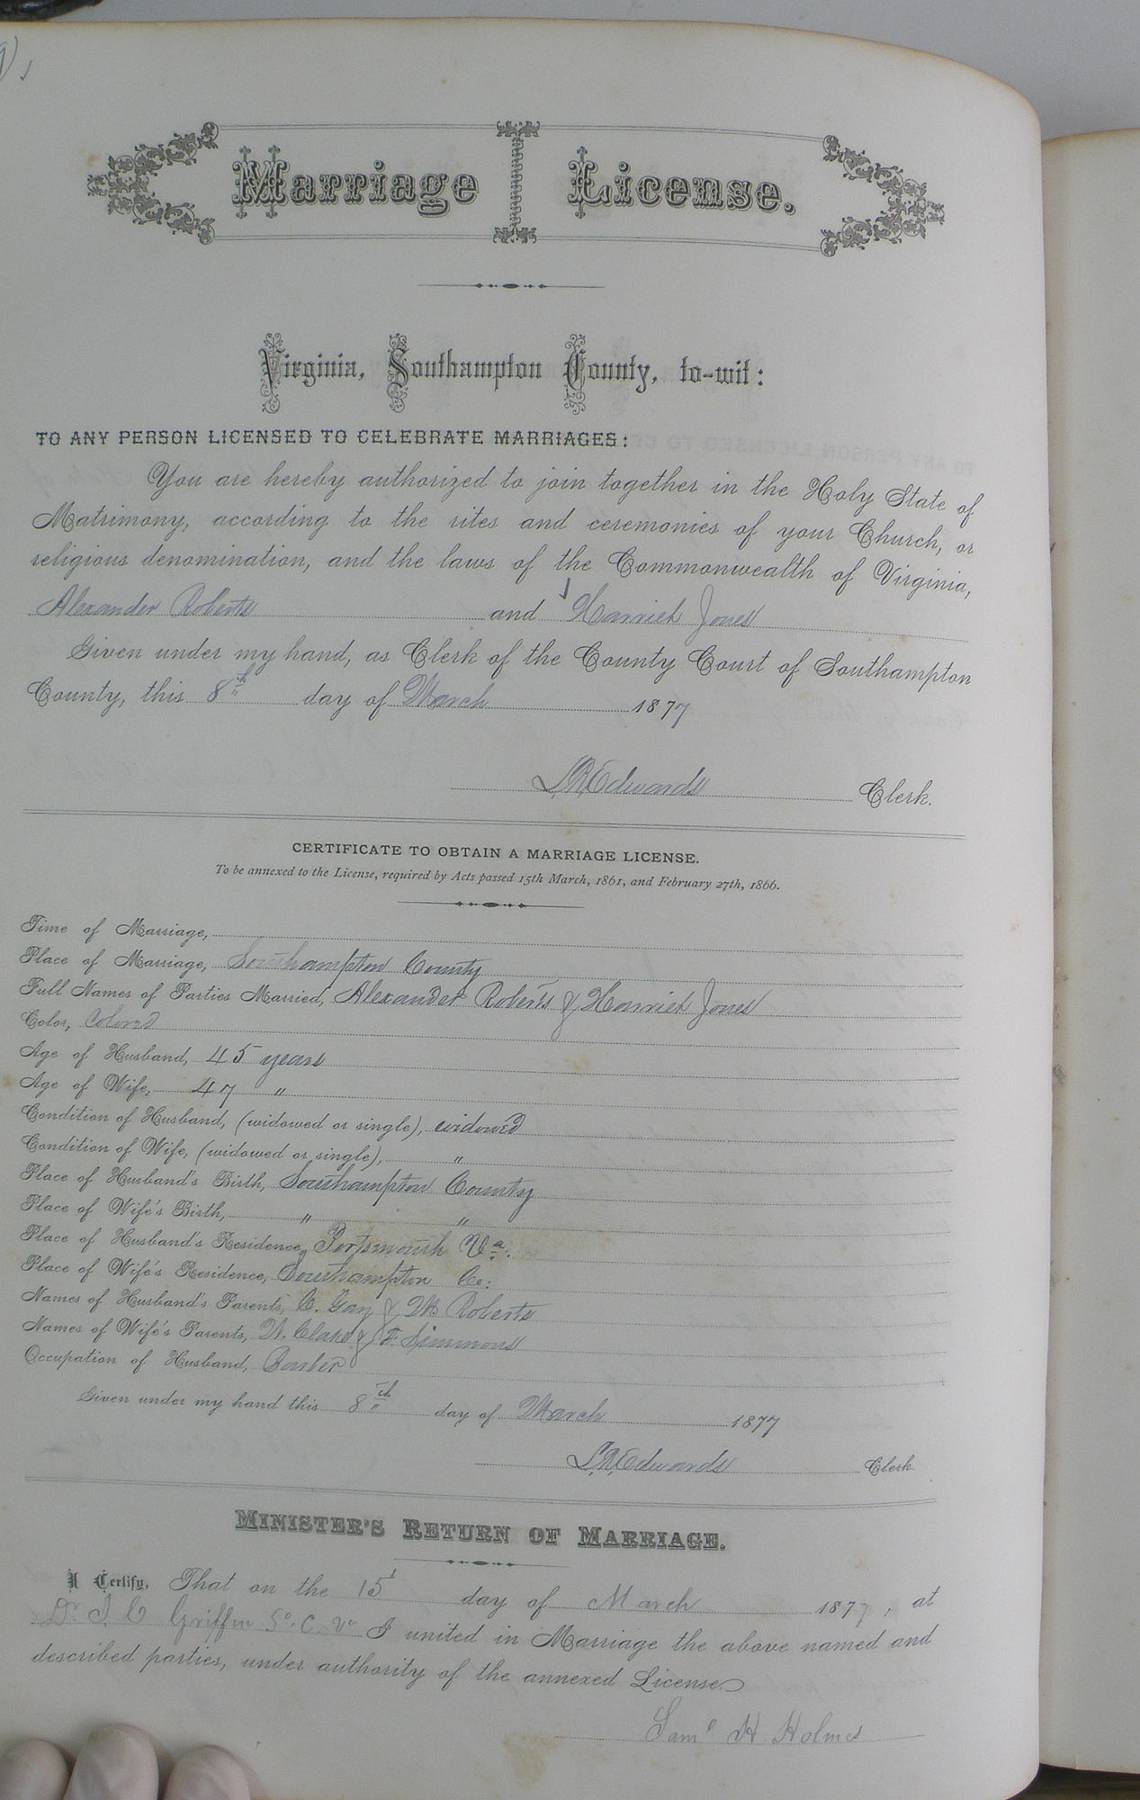 Marriage License.
Virginia, Southampton County, to-wit:
TO ANY PERSON LICENSED TO CELEBRATE MARRIAGES:
You are hereby authorized to join together in the Holy State of
Matrimony, according to the rites and ceremonies of your Church, or
religious denomination, and the laws of the Commonwealth of Virginia,
Alexander Roberts and Harriet Jones
Given under my hand, as Clerk of the County Court of Southampton
County, this 8th day of March 1877
L.R. Edwards Clerk.
CERTIFICATE TO OBTAIN A MARRIAGE LICENSE.
To be annexed to the License, required by Acts passed 15th March, 1861, and February 27th, 1866.
Time of Marriage,
Place of Marriage, Southampton County
Full Names of Parties Married, Alexander Roberts & Harriet Jones
Color, Colored
Age of Husband, 45 years
Age of Wife, 47 "
Condition of Husband, (widowed or single), widowed
Condition of Wife, (widowed or single), "
Place of Husband's Birth, Southampton County
Place of Wife's Birth, " "
Place of Husband's Residence, Portsmouth Va.
Place of Wife's Residence, Southampton Co:
Names of Husband's Parents, C. Gay & M Roberts
Names of Wife's Parents, & F. Simmons
Occupation of Husband, Barber
Given under my hand this 8th day of March 1877
L.R. Edwards Clerk
MINISTER'S RETURN OF MARRIAGE.
I Certify, That on the 15 day of March 1877, at
Dr. Griffin So. C. Va I united in Marriage the above named and
described parties, under authority of the annexed License.
Saml H Holmes